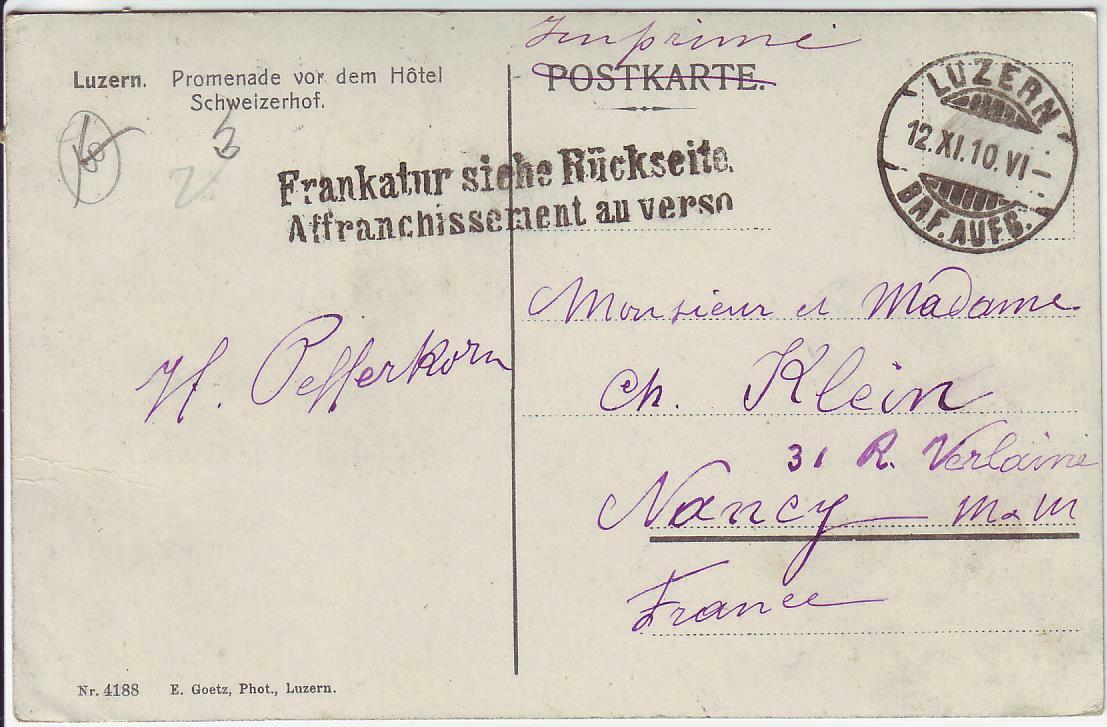 Luzern. Promenade vor dem Hôtel
Schweizerhof.
3
2
Imprimé
POSTKARTE.
LUZERN
12.XI.10.VI-
BRF.AUFG.
Frankatur siehe Rückseite.
Affranchissement au verso
H. Pefferkorn
Monsieur et Madame
Ch. Klein
31 R. Verlaine
Nancy — M & M
France
Nr. 4188 E. Goetz, Phot., Luzern.